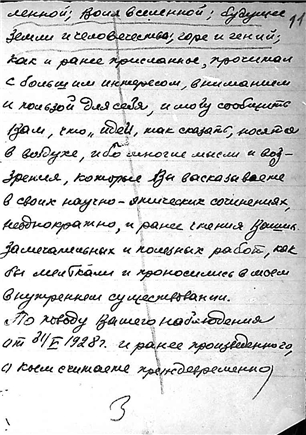 ленной; Воля вселенной; будущее
земли и человечества; горе и гений; 11
как и ранее присланное, прочитал
с большим интересом, вниманием
и пользой для себя, и могу сообщить
Вам, что „идеи, так сказать, носятся
в воздухе, ибо многие мысли и воз-
зрения, которые Вы высказываете
в своих научно-этических сочинениях,
неоднократно, и ранее чтения Ваших
замечательных и полезных работ, как
бы мелькали и проносились в моем
внутреннем существовании.
По поводу Вашего наблюдения
от 31/V 1928 г. и ранее произведенного,
о коем считаете преждевременно
3